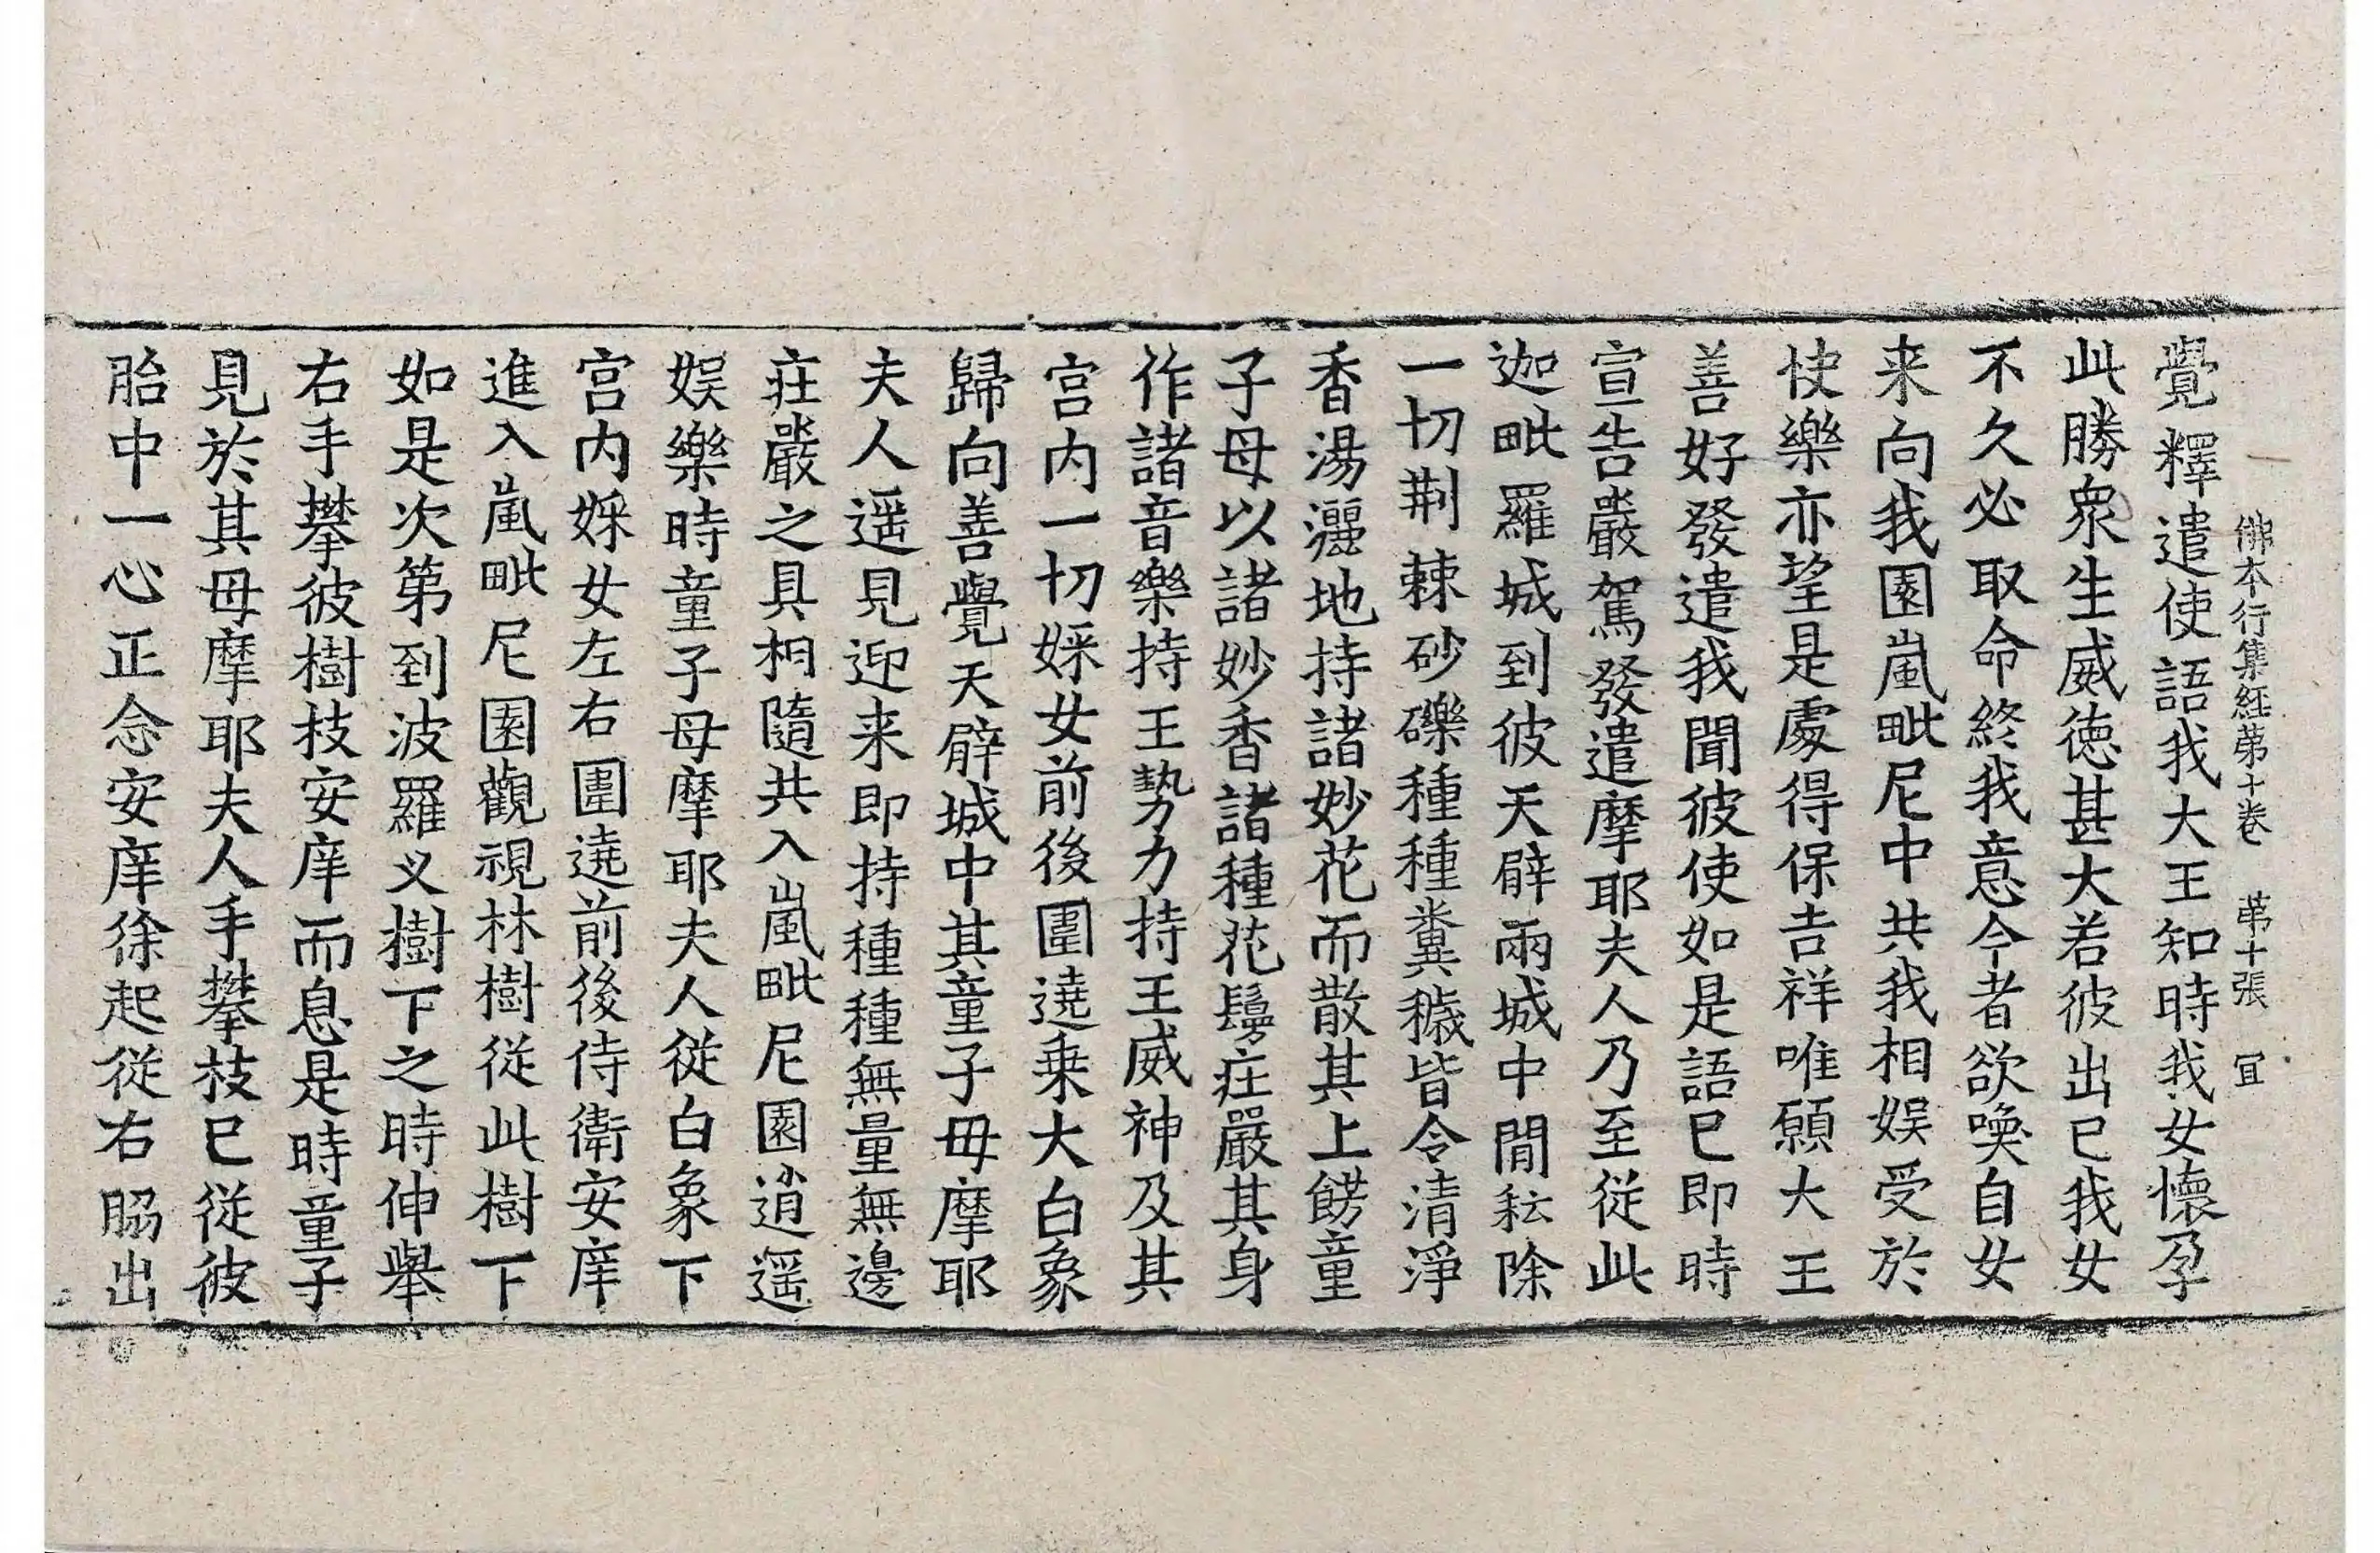 佛本行集經第十卷　第十張　冝
覺釋遣使語我大王知時我女懷孕
此勝衆生威德甚大若彼出已我女
不久必取命終我意今者欲喚自女
来向我園嵐毗尼中共我相娱受於
快樂亦望是處得保吉祥唯願大王
善好發遣我聞彼使如是語已即時
宣告嚴駕發遣摩耶夫人乃至從此
迦毗羅城到彼天臂兩城中間耘除
一切荆棘砂礫種種糞穢皆令清淨
香湯灑地持諸妙花而散其上餝童
子母以諸妙香諸種花鬘莊嚴其身
作諸音樂持王勢力持王威神及其
宫内一切婇女前後圍遶乗大白象
歸向善覺天臂城中其童子母摩耶
夫人遥見迎来即持種種無量無邊
莊嚴之具相隨共入嵐毗尼園逍遥
娱樂時童子母摩耶夫人從白象下
宫内婇女左右圍遶前後侍衛安庠
進入嵐毗尼園觀視林樹從此樹下
如是次第到波羅叉樹下之時伸舉
右手攀彼樹枝安庠而息是時童子
見於其母摩耶夫人手攀枝已從彼
胎中一心正念安庠徐起從右脇出